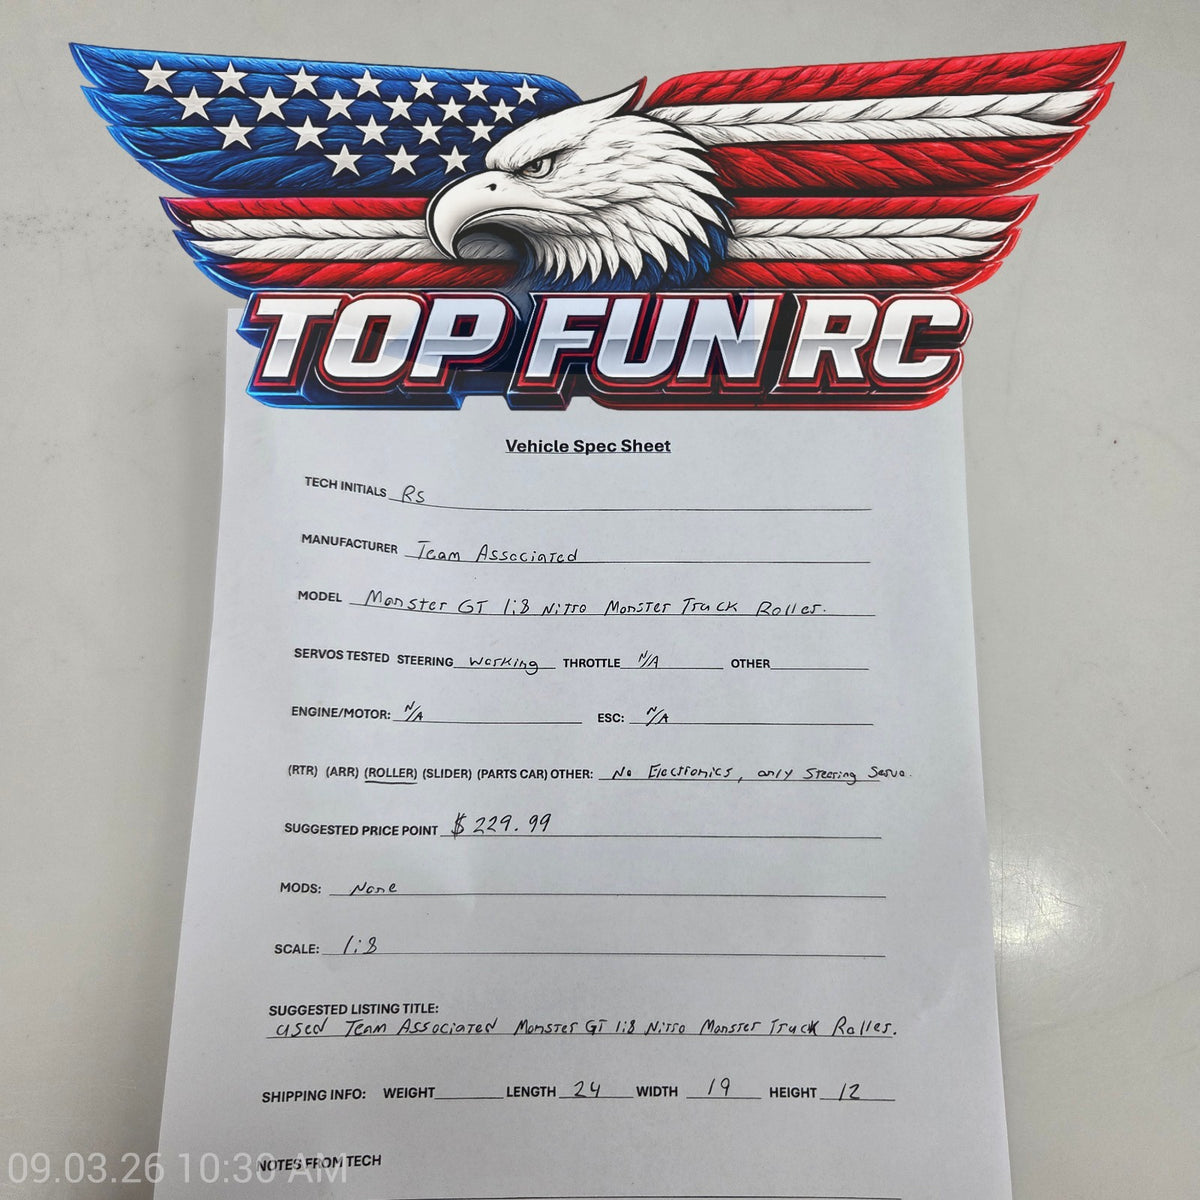 TOP FUN RC
Vehicle Spec Sheet
TECH INITIALS RS
MANUFACTURER Team Associated
MODEL Monster GT 1:8 Nitro Monster Truck Roller.
SERVOS TESTED STEERING working THROTTLE N/A OTHER
ENGINE/MOTOR: N/A ESC: N/A
(RTR) (ARR) (ROLLER) (SLIDER) (PARTS CAR) OTHER: No Electronics, only Steering Servo.
SUGGESTED PRICE POINT $229.99
MODS: None
SCALE: 1:8
SUGGESTED LISTING TITLE:
used Team Associated Monster GT 1:8 Nitro Monster Truck Roller.
SHIPPING INFO: WEIGHT LENGTH 24 WIDTH 19 HEIGHT 12
NOTES FROM TECH
09.03.26 10:30 AM